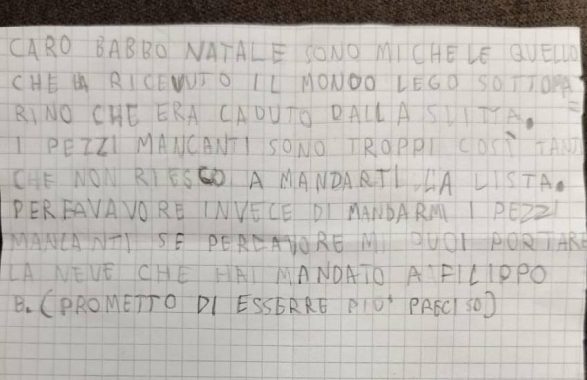 CARO BABBO NATALE SONO MICHELE QUELLO
CHE HA RICEVUTO IL MONDO LEGO SOTTOMA=
RINO CHE ERA CADUTO DALLA SLITTA.
I PEZZI MANCANTI SONO TROPPI COSÌ TANTI
CHE NON RIESCO A MANDARTI LA LISTA.
PERFAVAVORE INVECE DI MANDARMI I PEZZI
MANCANTI SE PERFAVORE MI PUOI PORTARE
LA NEVE CHE HAI MANDATO A FILIPPO
B. (PROMETTO DI ESSERRE PIU' PRECISO)